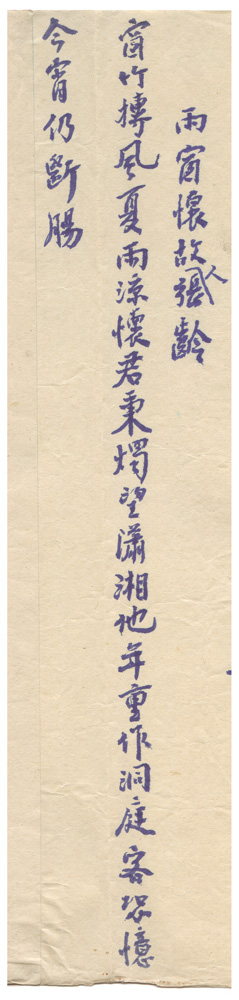 雨窗懷故人張齡
窗竹搏風夏雨涼懷君秉燭望瀟湘他年重作洞庭客恐憶
今宵仍斷腸